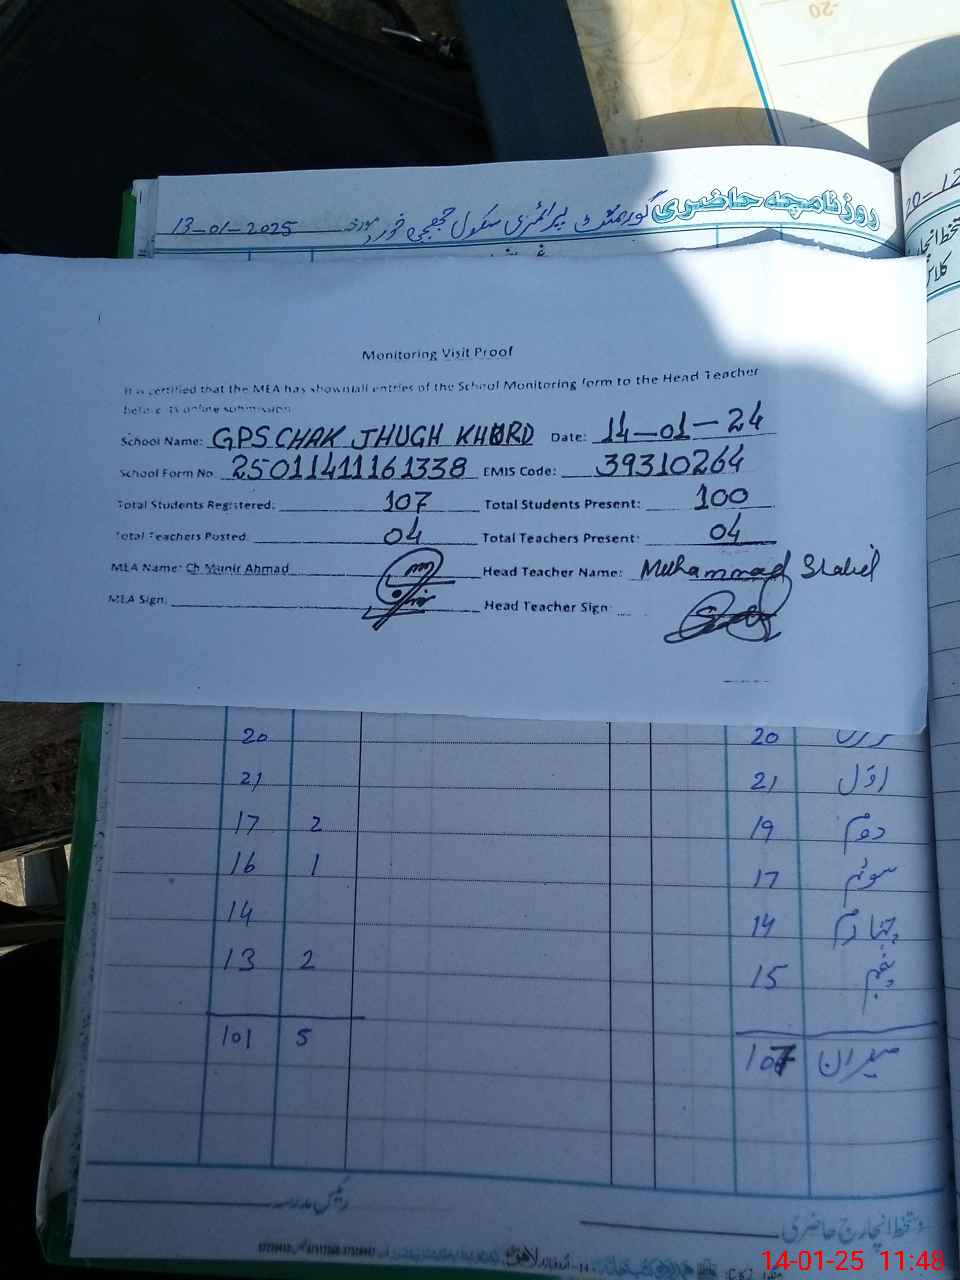 روزنامچہ حاضری گورنمنٹ پرائمری سکول
13-01-2025
20-12
Monitoring Visit Proof
It is certified that the MEA has shown all entries of the School Monitoring form to the Head Teacher
before its online submission
School Name: GPS CHAK JHUGH KHURD Date: 14-01-24
School Form No: 25011411161338 EMIS Code: 39310264
Total Students Registered: 107 Total Students Present: 100
Total Teachers Posted: 04 Total Teachers Present: 04
MEA Name: Ch Munir Ahmad Head Teacher Name: Muhammad
MEA Sign: Head Teacher Sign
20 20
اوّل 21 21
دوم 19 2 17
سوئم 17 1 16
چہارم 14 14
پنجم 15 2 13
میزان 107 5 101
رئیس مدرسہ
دستخط انچارج حاضری
14-01-25 11:48